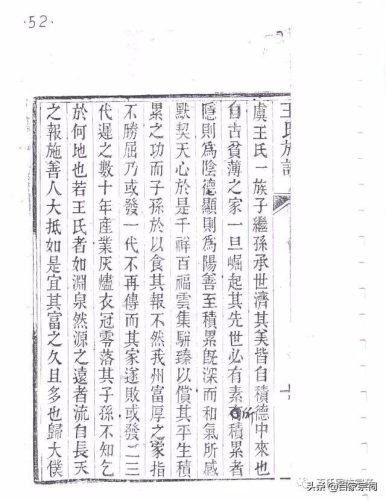 ·52·
王氏族譜
虞王氏一族子繼孫承世濟其美皆自積德中來也
自古貧薄之家一旦崛起其先世必有素所積累者
隱則為陰德顯則為陽善至積累既深而和氣所感
默契天心於是千祥百福雲集駢臻以償其平生積
累之功而子孫於以食其報不然我州富厚之家指
不勝屈乃或發一代不再傳而其家遂敗或發二三
代遲之數十年產業灰燼衣冠零落其子孫不知乞
於何地也若王氏者如淵泉然源之遠者流自長天
之報施善人大抵如是宜其富之久且多也歸大僕
头条 @百家宗祠